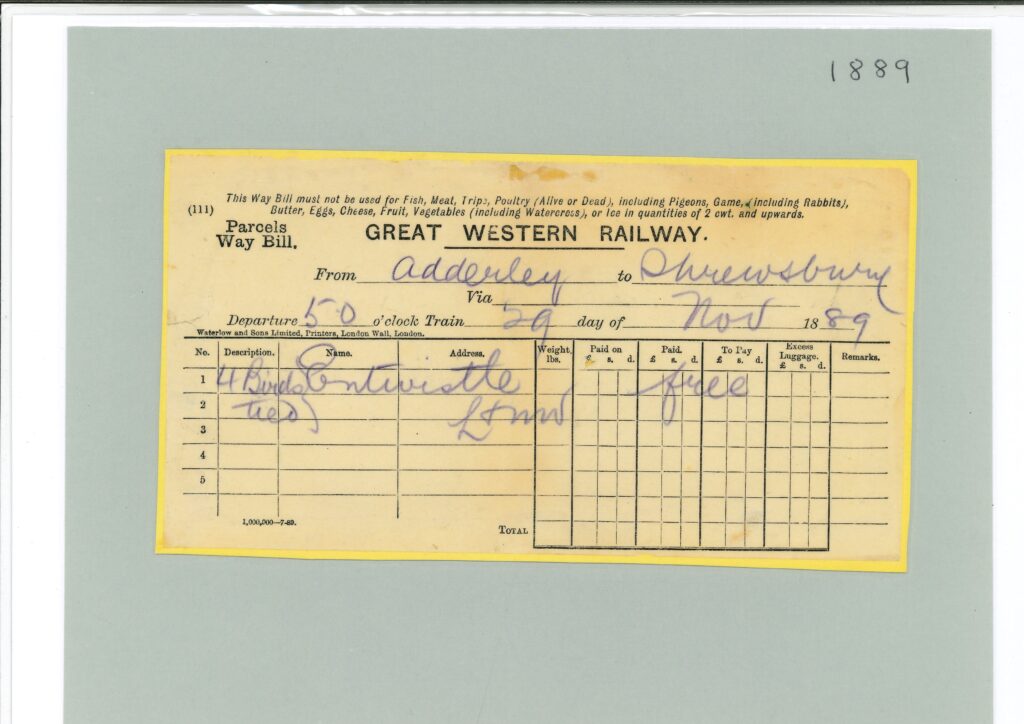 1889
This Way Bill must not be used for Fish, Meat, Tripe, Poultry (Alive or Dead), including Pigeons, Game, (including Rabbits),
(111) Butter, Eggs, Cheese, Fruit, Vegetables (including Watercress), or Ice in quantities of 2 cwt. and upwards.
Parcels
Way Bill.
GREAT WESTERN RAILWAY.
From Adderley to Shrewsbury
Via
Departure 5 0 o'clock Train 29 day of Nov 1889
Waterlow and Sons Limited, Printers, London Wall, London.
No. Description. Name. Address. Weight lbs. Paid on £ s. d. Paid. £ s. d. To Pay £ s. d. Excess Luggage. £ s. d. Remarks.
1 4 Birds Entwistle free
2 tied
3
4
5
1,000,000—7-89.
TOTAL